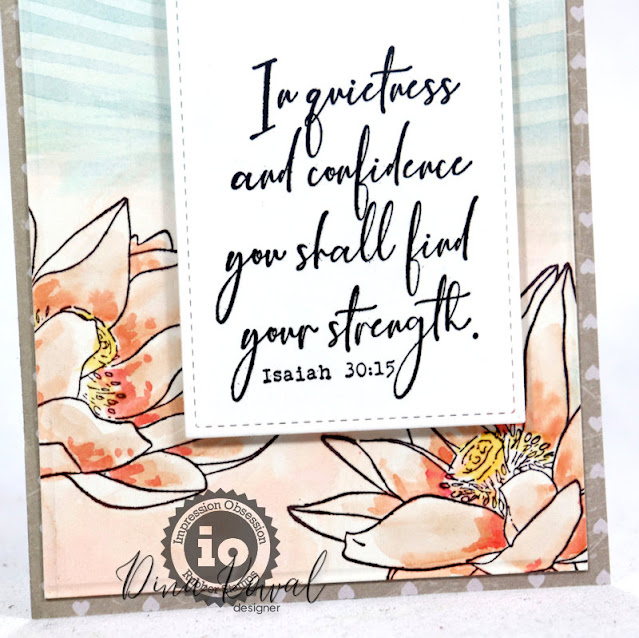 In quietness
and confidence
you shall find
your strength.
Isaiah 30:15
Impression Obsession
io
Rubber Stamps
Dina Kowal
designer